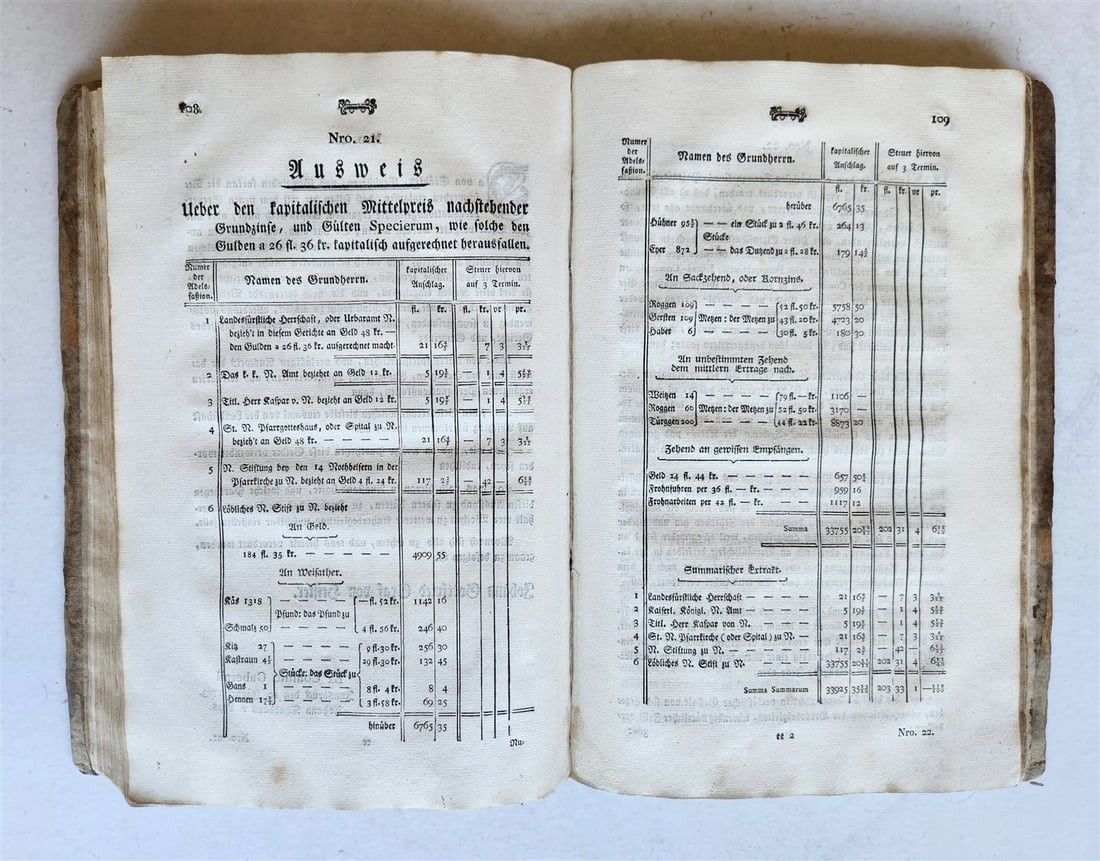 108.
Nro. 21.
Ausweis
Ueber den kapitalischen Mittelpreis nachstehender
Grundzinse, und Gülten Specierum, wie solche den
Gulden a 26 fl. 36 kr. kapitalisch aufgerechnet herausfallen.
Numer der Adels-faßion. Namen des Grundherrn. kapitalischer Anschlag. Steuer hiervon auf 3 Termin.
fl. kr. fl. kr. vr pr.
1 Landesfürstliche Herrschaft, oder Uebaramt N.
bezieh't in diesem Gerichte an Geld 48 kr. —
den Gulden a 26 fl. 36 kr. aufgerechnet macht 21 16⅘ — 7 3
2 Das k. k. N. Amt beziehet an Geld 12 kr. 5 19⅕ — 1 4
3 Titl. Herr Kaspar v. N. bezieht an Geld 12 kr. 5 19⅕ — 1 4
4 St. N. Pfargotteshaus, oder Spital zu N.
bezieh't an Geld 48 kr. — — — — 21 16⅘ — 7 3
5 N. Stiftung bey den 14 Nothhelfern in der
Pfarkirche zu N. bezieht an Geld 4 fl. 24 kr. 117 — 42 —
6 Löbliches N. Stift zu N. bezieht
An Geld.
184 fl. 35 kr. — — — — — 4909 55
An Weisather.
Käs 1318 — — — — — — fl. 52 kr. 1142 16
Pfund: das Pfund zu
Schmalz 50 — — — — — 4 fl. 56 kr. 246 40
Kitz 27 — — — — 9 fl. 30 kr. 256 30
Kastraun 4½ — — — — 29 fl. 30 kr. 132 45
Stücke: das Stück zu
Gans 1 — — — — 8 fl. 4 kr. 8 4
Hennen 17½ — — — — 3 fl. 58 kr. 69 25
hinüber 6765 35
ee
Nu-
109
Numer der Adels-faßion. Namen des Grundherrn. kapitalischer Anschlag. Steuer hiervon auf 3 Termin.
fl. kr. fl. kr. vr pr.
herüber 6765 35
Hühner — — ein Stück zu 2 fl. 46 kr. 264 13
Stücke
Eyer 872 — — das Dutzend zu 2 fl. 28 kr. 179
An Sackzehend, oder Kornzins.
Roggen 109 — — — — — 52 fl. 50 kr. 5758 50
Gersten 109 Metzen: der Metzen zu 43 fl. 20 kr. 4723 20
Haber 6 — — — — — 30 fl. 5 kr. 180 30
An unbestimmten Zehend
dem mittlern Ertrage nach.
Weitzen 14 — — — — — 79 fl. — kr. 1106 —
Roggen 60 Metzen: der Metzen zu 52 fl. 50 kr. 3170 —
Türggen 200 — — — — — 44 fl. 22 kr. 8873 20
Zehend an gewissen Empfängen.
Geld 24 fl. 44 kr. — — — — — 657
Frohnfuhren per 36 fl. — kr. — — — 959 16
Frohnarbeiten per 42 fl. — kr. — — — 1117 12
Summa 33755 202 31 4
Summarischer Extrakt.
1 Landesfürstliche Herrschaft — — — — 21 16⅘ — 7 3
2 Kaiserl. Königl. N. Amt — — — — 5 19⅕ 1 4
3 Titl. Herr Kaspar von N. — — — — 5 19⅕ 1 4
4 St. N. Pfarkirche (oder Spital) zu N. — 21 16⅘ — 7 3
5 N. Stiftung zu N. — — — — 117 — 42 —
6 Löbliches N. Stift zu N. — — — 33755 202 31 4
Summa Summarum 33925 203 33 1
ee 2
Nro. 22.